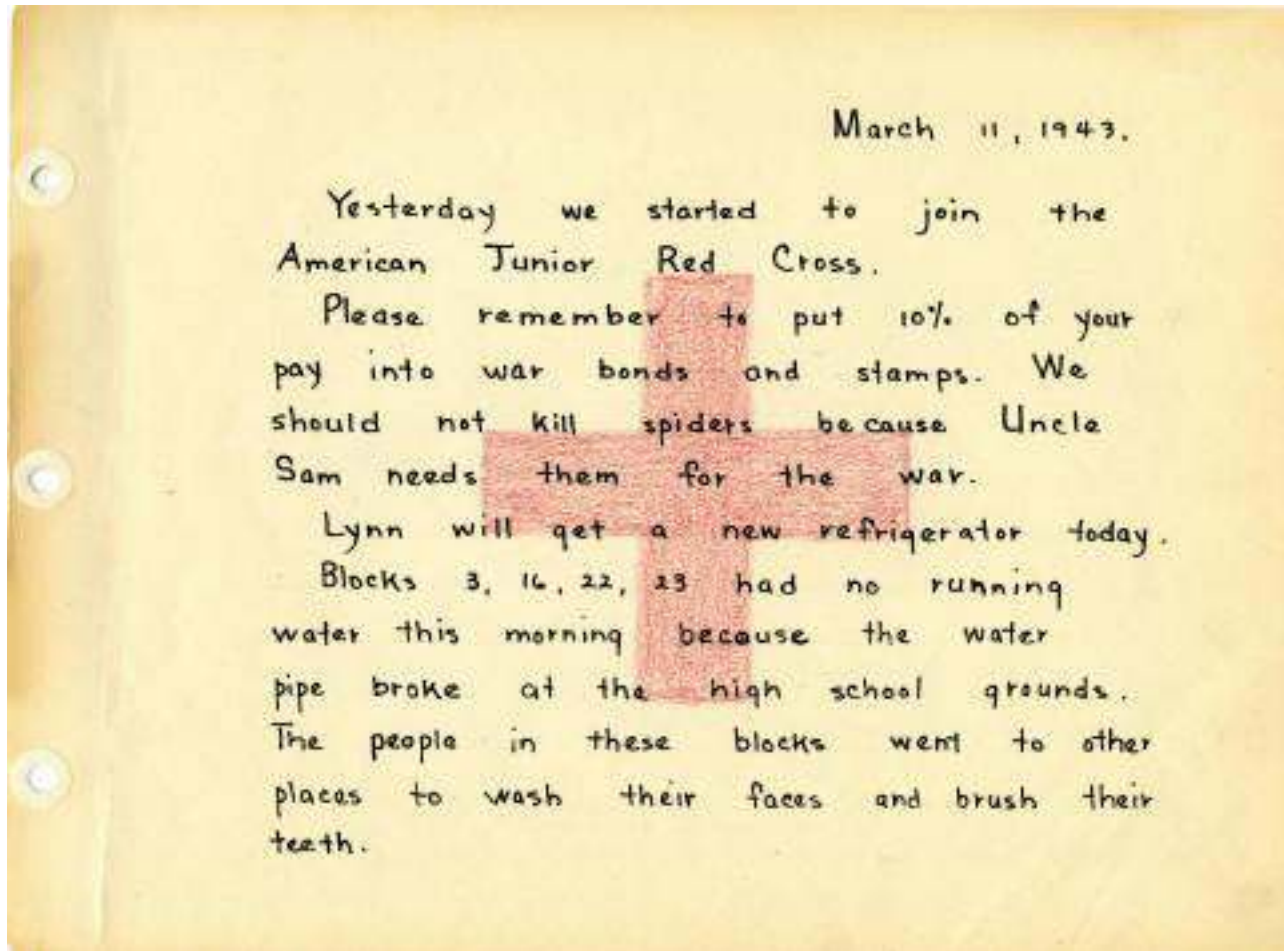 March 11, 1943.
Yesterday we started to join the
American Junior Red Cross.
Please remember to put 10% of your
pay into war bonds and stamps. We
should not kill spiders because Uncle
Sam needs them for the war.
Lynn will get a new refrigerator today.
Blocks 3, 16, 22, 23 had no running
water this morning because the water
pipe broke at the high school grounds.
The people in these blocks went to other
places to wash their faces and brush their
teeth.